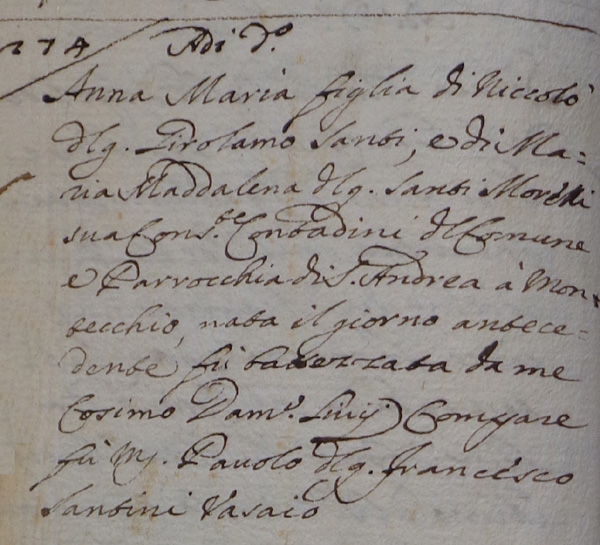 274 Adi d.º
Anna Maria figlia di Niccolò
dlq. Girolamo Santi, e di Ma=
ria Maddalena dlq. Santi Moretti
sua Cons.te Contadini dl Comune
e Parrocchia di S. Andrea à Mon=
tecchio, nata il giorno antece=
dente fù battezzata da me
Cosimo Dam.º Livij Compare
fù M. Pavolo dlq. Francesco
Santini Vasaio